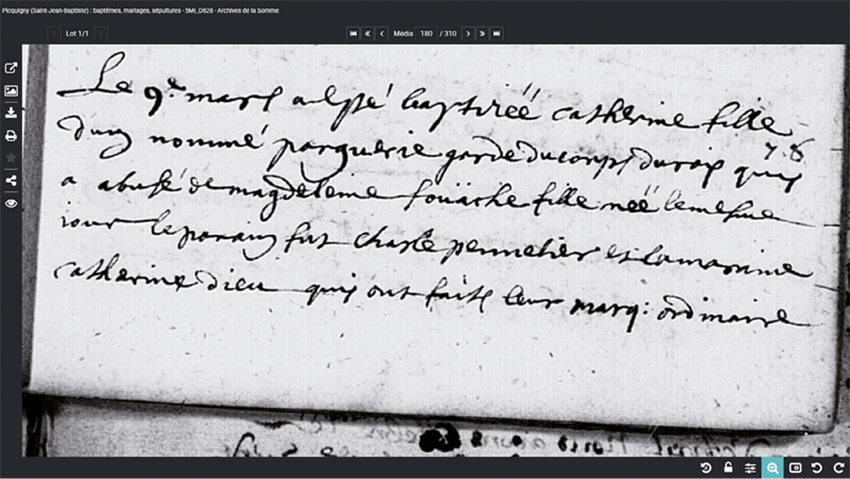 Picquigny (Saint-Jean-Baptiste) : baptêmes, mariages, sépultures - 5MI_D828 - Archives de la Somme
Lot 1/1
Média 180 / 310
Le 9e mars a esté baptizéé catherine fille
dun nommé parquerie garde du corps du roix quis
a abusé de magdeleine fouache fille néé le mesme
iour le parain fut charle pennetier et la marine
catherine dieu quis ont faits leur marq: ordinaire